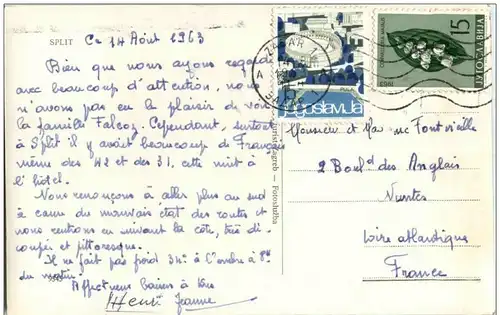 SPLIT
Ce 14 Août 1963
Bien que nous ayons regardé
avec beaucoup d'attention, nous
n'avons pas eu le plaisir de voir
la famille Falcoz. Cependant, surtout
à Split il y avait beaucoup de Français
même des 42 et des 31, cette nuit à
l'hôtel.
Nous renonçons à aller plus au sud
à cause du mauvais état des routes et
nous rentrons en suivant la côte, très dé-
coupée et pittoresque.
Il ne fait pas froid 34° à l'ombre à 8h
du matin.
Affectueux baisers à tous
Henri Jeanne
ZADAR 1
Jugoslavija
PULA
15
ЈУГОСЛАВИЈА
CONVALLARIA MAJALIS
1963
Zagreb - Fotoslužba
Monsieur et Mme Fontvieille
2 Bould des Anglais
Nantes
Loire atlantique
France